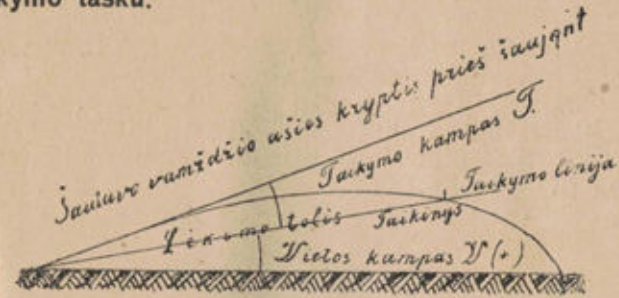 kymo tašku.
Šautuvo vamždžio ašies kryptis prieš šaujant
Taikymo kampas T.
Taikymo linija
tolis
Taikinys
Vietos kampas V (+)